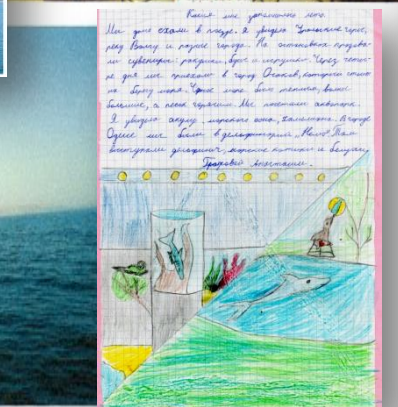 Каким мне запомнилось лето.
Мы долго ехали в поезде. Я увидела Уральские горы,
реку Волгу и разные города. На остановках продава-
ли сувениры: ракушки, бусы и игрушки. Через четы-
ре дня мы приехали в город Очаков, который стоит
на берегу моря. Чёрное море было тёплым, волны
большие, а песок горячим. Мы посетили аквапарк.
Я увидела акулу, морского кота, хамелеона. В городе
Одессе мы были в дельфинарии „Немо“. Там
выступали дельфины, морские котики и белухи.